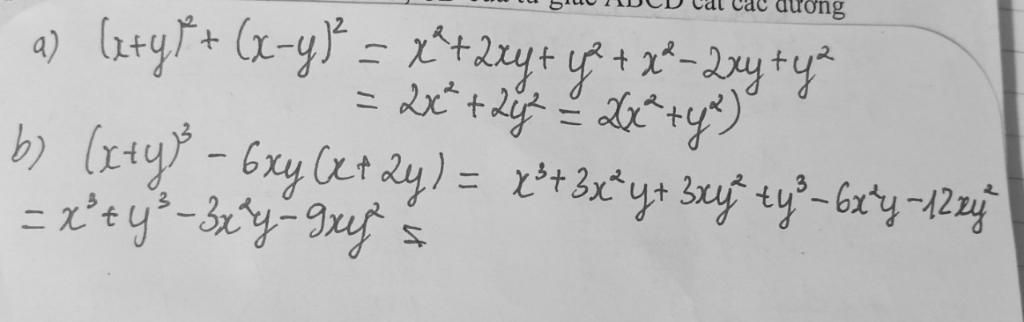 tứ giác ABCD cắt các đường
a) (x+y)² + (x-y)² = x²+2xy+y²+x²-2xy+y²
= 2x²+2y² = 2(x²+y²)
b) (x+y)³ - 6xy(x+2y) = x³+3x²y+3xy²+y³-6x²y-12xy²
= x³+y³-3x²y-9xy² =